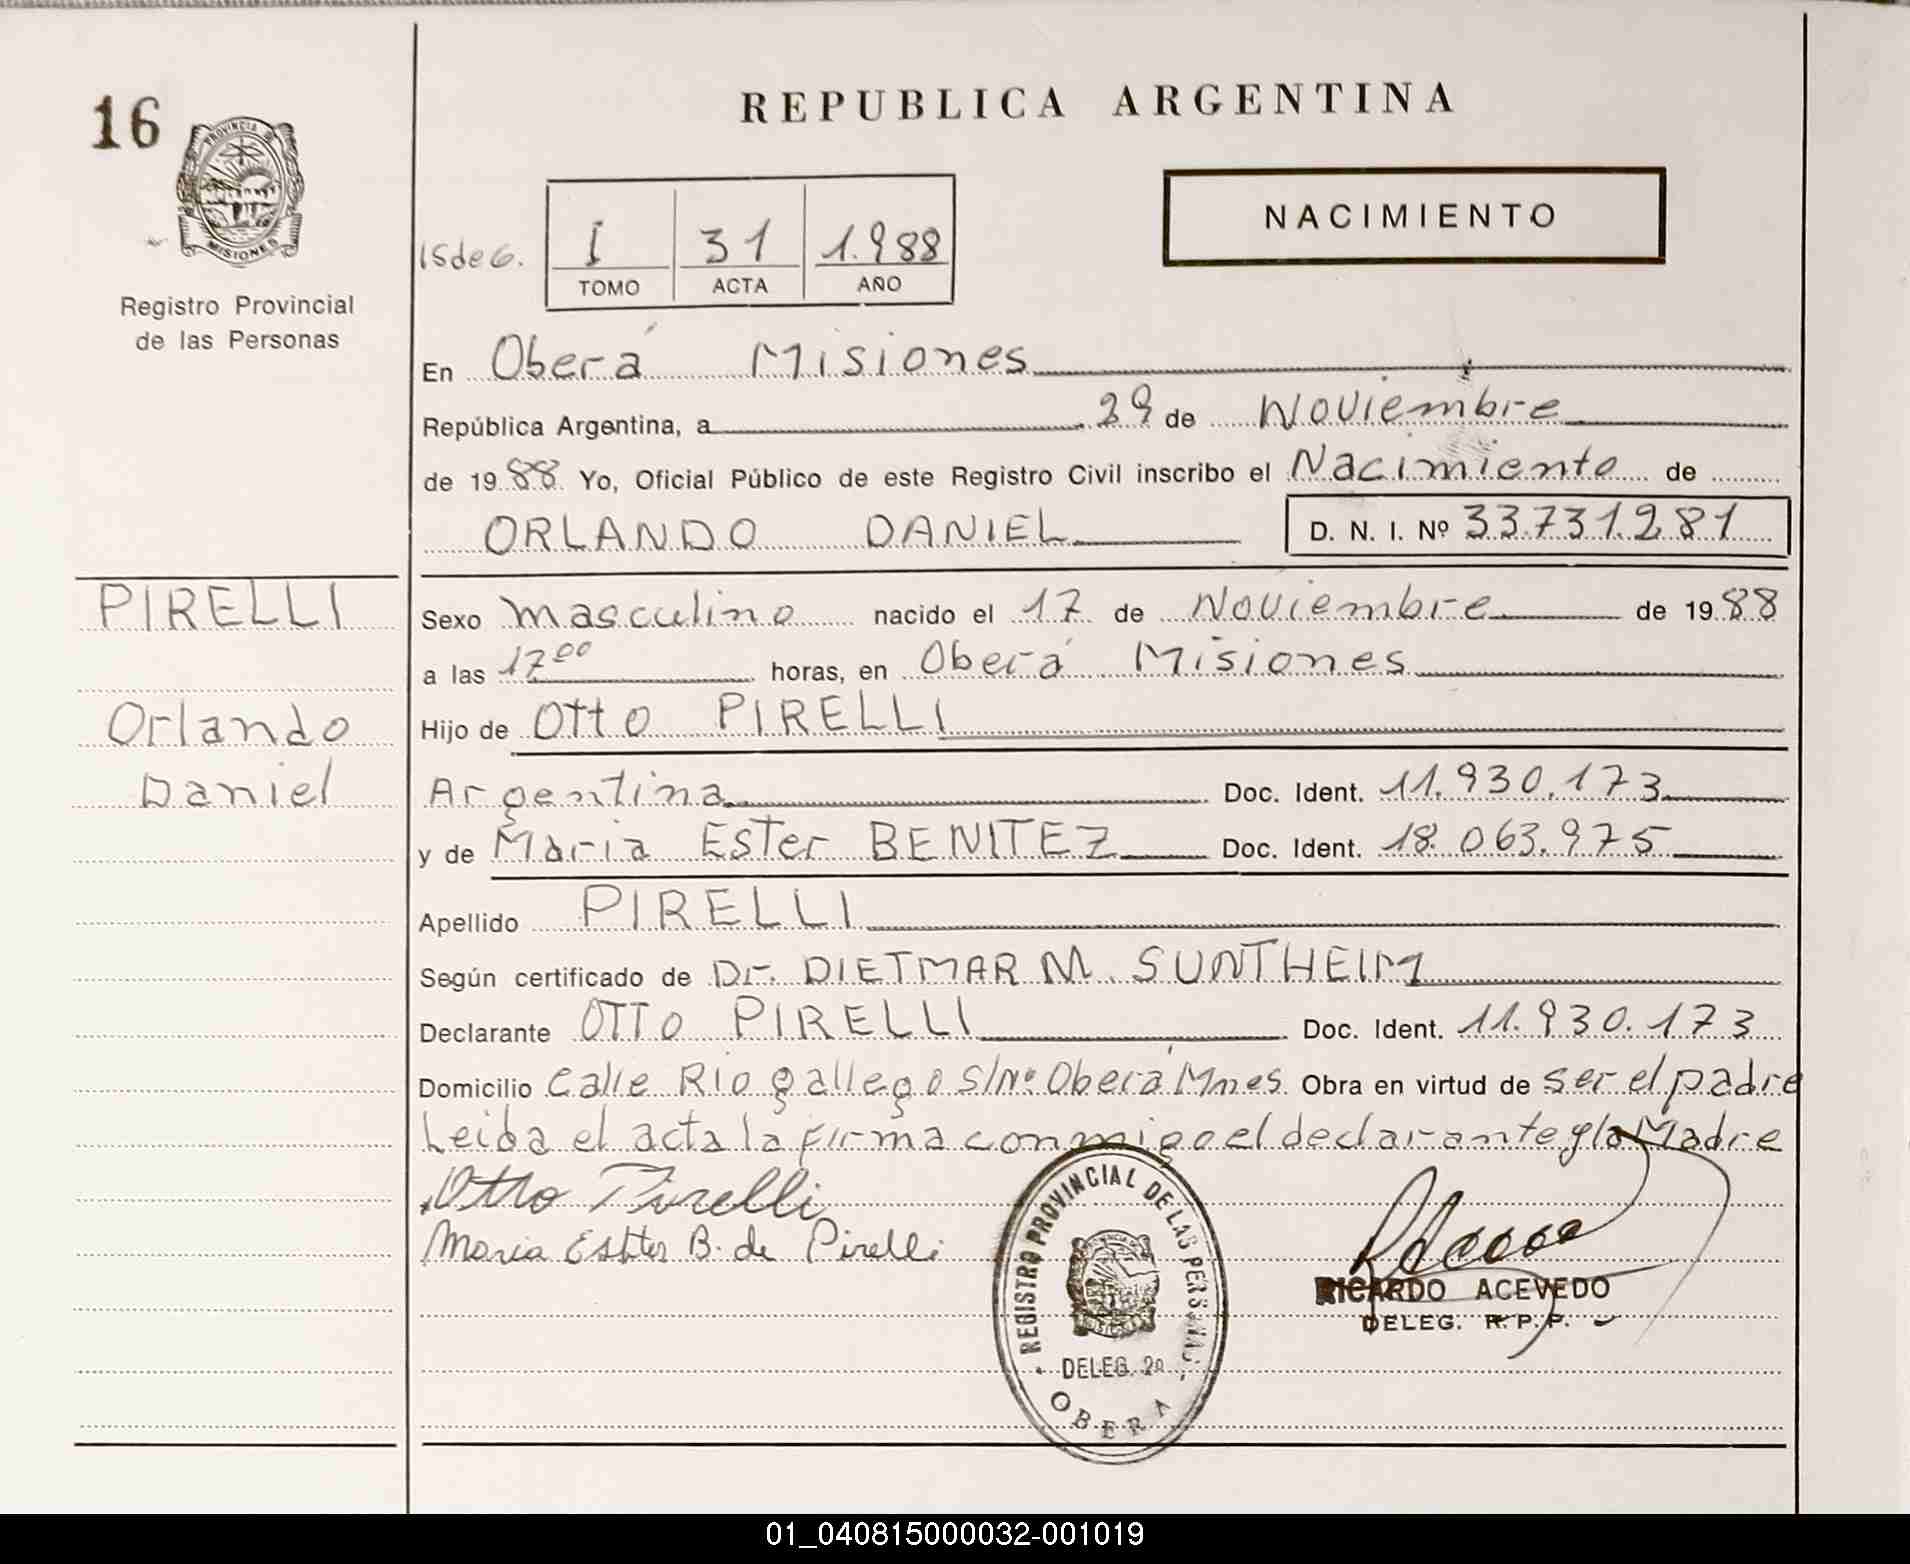 16
PROVINCIA DE
MISIONES
Registro Provincial
de las Personas
REPUBLICA ARGENTINA
NACIMIENTO
ISdeG.
I 31 1.988
TOMO ACTA AÑO
En Oberá Misiones
República Argentina, a 29 de Noviembre
de 1988 Yo, Oficial Público de este Registro Civil inscribo el Nacimiento de
ORLANDO DANIEL D. N. I. Nº 33.731.281
PIRELLI
Orlando
Daniel
Sexo masculino nacido el 17 de Noviembre de 1988
a las 17 00 horas, en Oberá Misiones
Hijo de Otto PIRELLI
Argentina Doc. Ident. 11.930.173
y de Maria Ester BENITEZ Doc. Ident. 18.063.975
Apellido PIRELLI
Según certificado de Dr. DIETMAR M. SUNTHEIM
Declarante OTTO PIRELLI Doc. Ident. 11.930.173
Domicilio Calle Rio gallego S/Nº Oberá Mnes. Obra en virtud de ser el padre
Leida el acta la firma conmigo el declarante y la Madre
Otto Pirelli
Maria Esther B. de Pirelli
REGISTRO PROVINCIAL DE LAS PERSONAS
DELEG. 2a
OBERA
RICARDO ACEVEDO
DELEG. R.P.P.
01_040815000032-001019